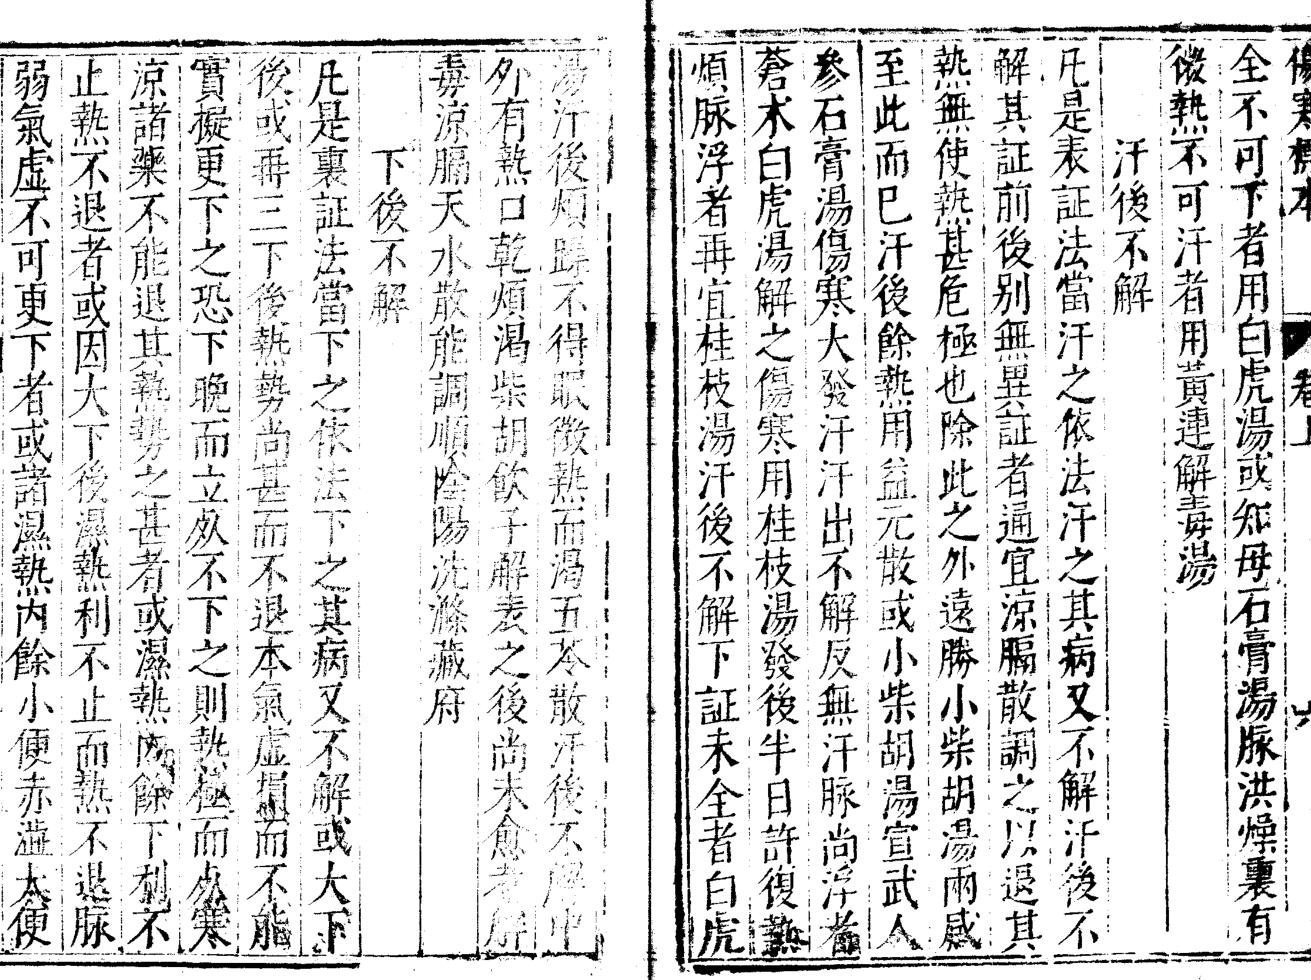 傷寒標本 卷上 六
全不可下者用白虎湯或知母石膏湯脉洪燥裏有
微熱不可汗者用黃連解毒湯
汗後不解
凡是表証法當汗之依法汗之其病又不解汗後不
解其証前後别無異証者通宜涼膈散調之以退其
熱無使熱甚危極也除此之外遠勝小柴胡湯兩感
至此而已汗後餘熱用益元散或小柴胡湯宣武人
參石膏湯傷寒大發汗汗出不解反無汗脉尚浮者
蒼术白虎湯解之傷寒用桂枝湯發後半日許復熱
煩脉浮者再宜桂枝湯汗後不解下証未全者白虎
湯汗後煩躁不得眠微熱而渴五苓散汗後不解中
外有熱口乾煩渴柴胡飲子解表之後尚未愈者解
毒涼膈天水散能調順陰陽洗滌藏府
下後不解
凡是裏証法當下之依法下之其病又不解或大下
後或再三下後熱勢尚甚而不退本氣虛損而不能
實擬更下之恐下晚而立死不下之則熱極而死寒
涼諸藥不能退其熱勢之甚者或濕熱內餘下利不
止熱不退者或因大下後濕熱利不止而熱不退脉
弱氣虛不可更下者或諸濕熱內餘小便赤澁大便